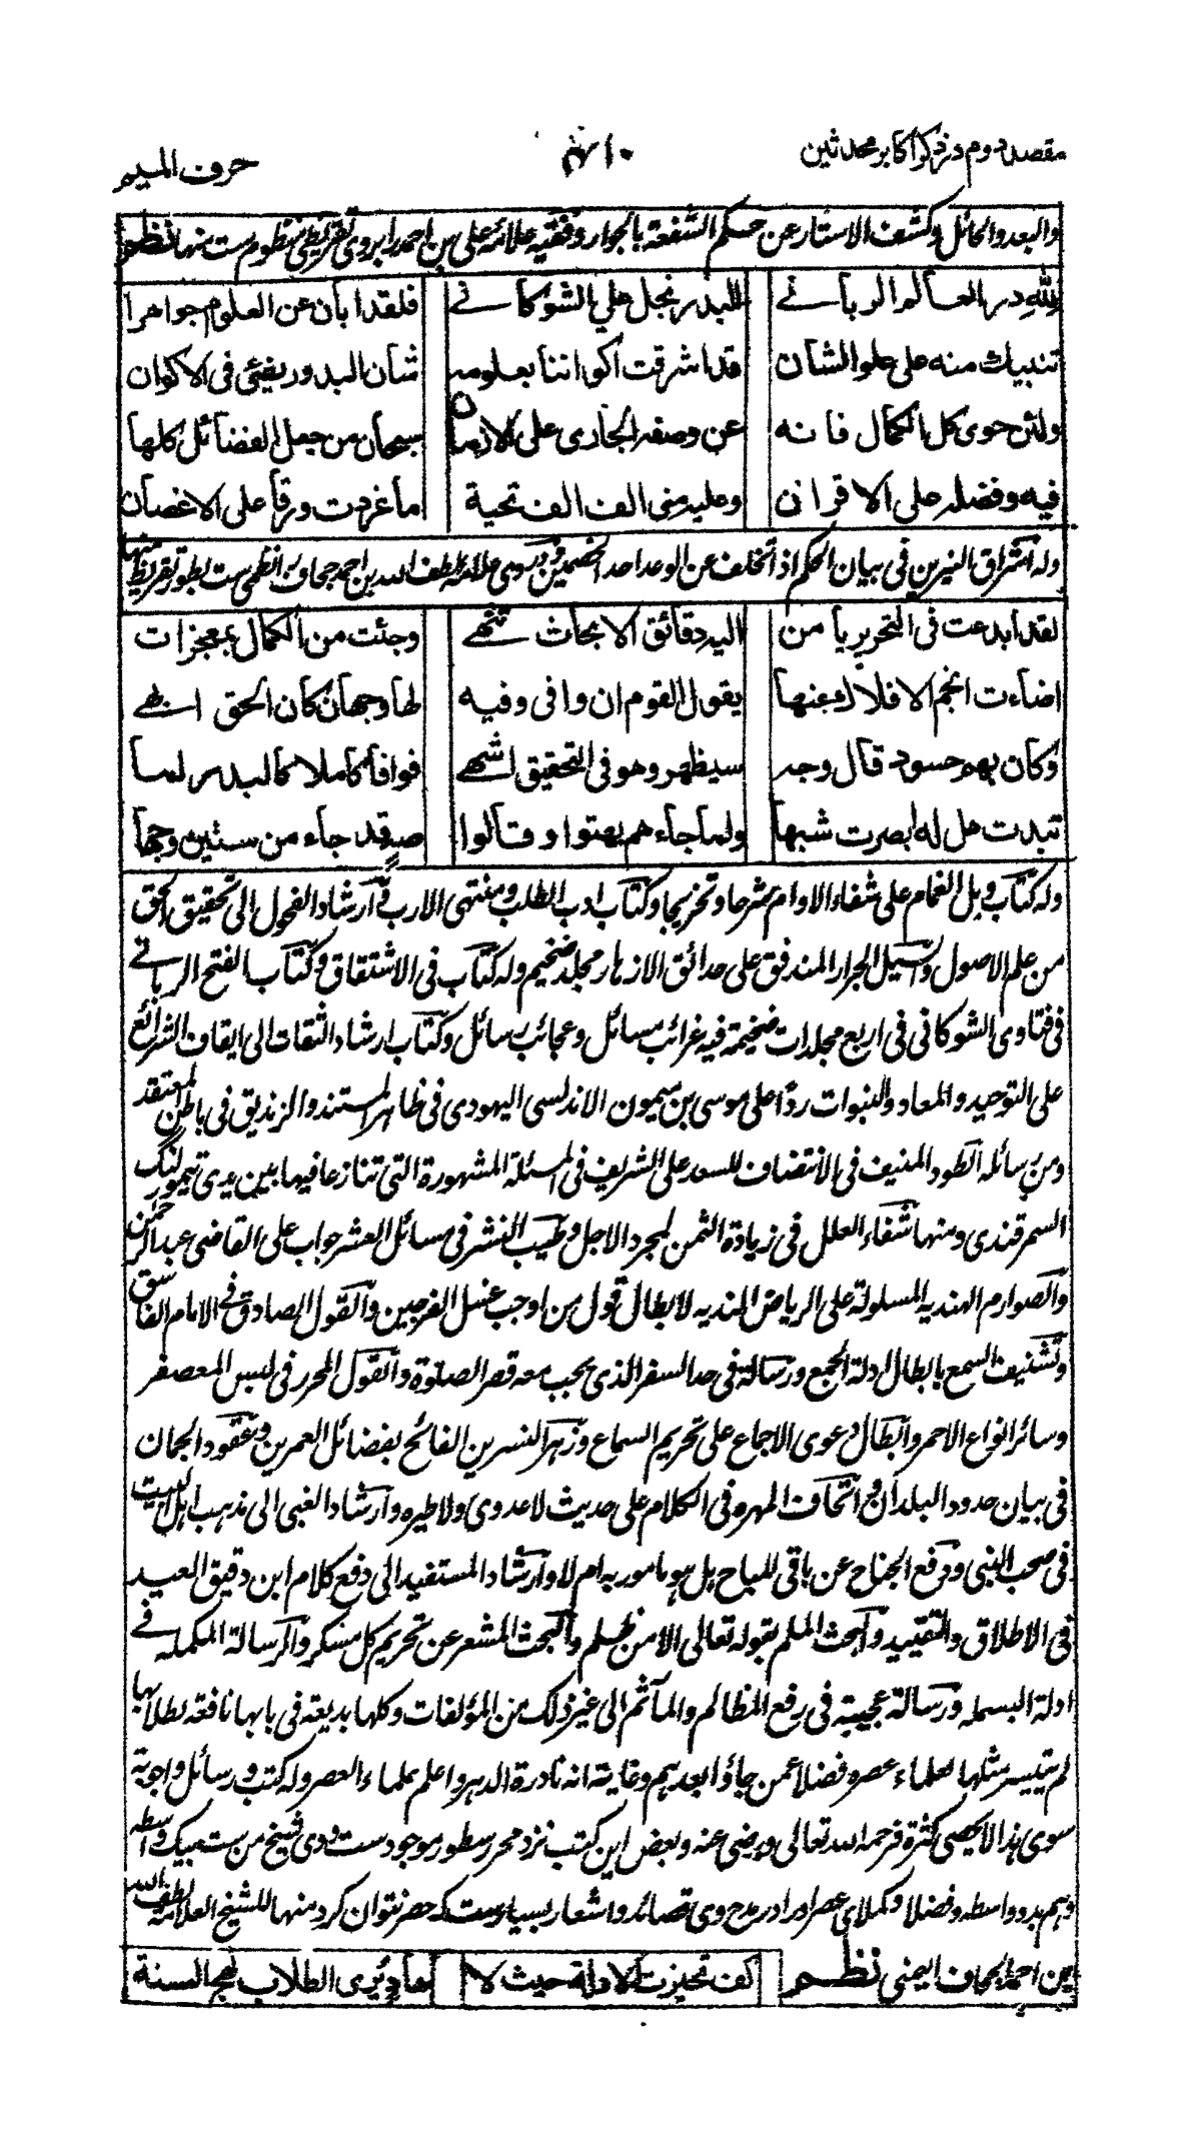 مقصد دوم در ذکر اکابر محدثین
۴۱۰
حرف المیم
والبعد والحائل وکشف الاستار عن حکم الشفعة بالجوار وفقیه علامه علی بن احمد را بروی تقریظی منظوم ست منها نظم
لله در العالم الربانے للبدر نجل علی الشوکانے فلقد ابان عن العلوم جواهرا
تنبیك منه علی علو الشان قد اشرقت اکواننا بعلومه شان البدور یضئی فی الاکوان
ولئن حوی کل الکمال فانه عن وصفه الجاری علی الازمان سبحان من جعل الفضائل کلها
فیه وفضله علی الاقران وعلیه منی الف الف تحیة ما غردت ورقا علی الاغصان
وله اشراق النیرین فی بیان الحکم اذا تخلف عن الوعد احد الخصمین وبروی علامه لطف الله بن احمد جحاف را نظمی ست بطور تقریظ منها
لقد ابدعت فی التحریر یا من الیه دقائق الابحاث تنهے وجئت من الکمال بمعجزات
اضاءت انجم الافلاك عنها یقول القوم ان وافی وفیه لها وجهان کان الحق ابهے
وکان بهم حسود قال وجه سیظهر وهو فی التحقیق اشهے فوافا کاملا کالبدر لما
تبدت هل له ابصرت شبها ولما جاءهم بهتوا وقالوا صدقد جاء من سنتین وجها
وله کتاب وبل الغمام علی شفاء الاوام شرحا وتخریجا وکتاب ادب الطلب ومنتهی الارب وارشاد الفحول الی تحقیق الحق
من علم الاصول والسیل الجرار المتدفق علی حدائق الازهار مجلد ضخیم وله کتاب فی الاشتقاق وکتاب الفتح الربانے
فی فتاوی الشوکانی فی اربع مجلدات ضخیمة فیه غرائب مسائل وعجائب رسائل وکتاب ارشاد الثقات الی ایقاف الشرائع
علی التوحید والمعاد والنبوات ردا علی موسی بن میمون الاندلسی الیهودی فی ظاهر المستند والزندیق فی باطن المعتقد
ومن رسائله الطود المنیف فی الانتصاف للسعد علی الشریف فی المسئلة المشهورة التی تنازعا فیها بین یدی تیمور لنگ
السمرقندی ومنها شفاء العلل فی زیادة الثمن لمجرد الاجل وطیب النشر فی مسائل العشر جواب علی القاضی عبدالرحمن
والصوارم الهندیه المسلولة علی الریاض الندیه لابطال قول من اوجب غسل الفرجین والقول الصادق فی الامام الفاسق
وتشنیف السمع بابطال ادلة الجمع ورسالة فی حد السفر الذی یجب معه قصر الصلوة والقول المحرر فی لبس المعصفر
وسائر انواع الاحمر وابطال دعوی الاجماع علی تحریم السماع وزهر النسرین الفائح بفضائل العمرین وعقود الجمان
فی بیان حدود البلدان واتحاف المهره فی الکلام علی حدیث لا عدوی ولا طیره وارشاد الغبی الی مذهب اهل البیت
فی صحب النبی ورفع الجناح عن باقی المباح هل هو مامور به ام لا وارشاد المستفید الی دفع کلام ابن دقیق العید
فی الاطلاق والتقیید والبحث الملم بقوله تعالی الا من ظلم والبحث المسفر عن تحریم کل مسکر والرسالة المکمله فے
ادلة البسمله ورسالة عجیبة فی رفع المظالم والمآثم الی غیر ذلک من المؤلفات وکلها بدیعة فی بابها نافعة لطلابها
لم یتیسر مثلها لعلماء عصره فضلا عمن جاؤا بعدهم وغایته انه نادرة الدهر واعلم علماء العصر وله کتب ورسائل واجوبة
سوی هذا لا یحصی کثرة فرحمه الله تعالی ورضی عنه وبعض این کتب نزد محرر سطور موجود ست ووی شیخ من ست بیک واسطه
وهم بدو واسطه وفضلا وکملای عصر او را در مدح وی قصائد واشعار بسیارست که حصر نتوان کرد منها للشیخ العلامة لطف الله
بن احمد الجحاف الیمنی نظم کف تحیزت الادلة حیث لا یعادیری الطلاب نهج السنة